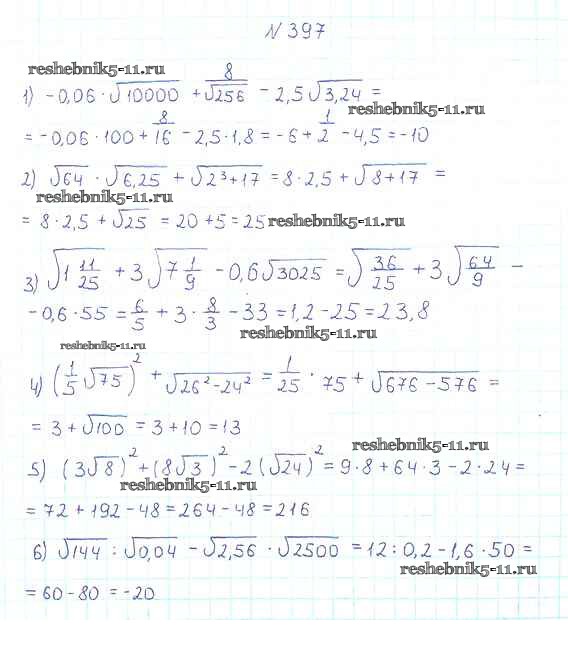 N 397
reshebnik5-11.ru
1) -0,06 · √10000 + 8/√256 - 2,5√3,24 =
reshebnik5-11.ru
= -0,06 · 100 + 8/16 - 2,5 · 1,8 = -6 + 1/2 - 4,5 = -10
2) √64 · √6,25 + √2³+17 = 8 · 2,5 + √8+17 =
reshebnik5-11.ru
= 8 · 2,5 + √25 = 20 + 5 = 25 reshebnik5-11.ru
3) √1 11/25 + 3√7 1/9 - 0,6√3025 = √36/25 + 3√64/9 -
- 0,6 · 55 = 6/5 + 3 · 8/3 - 33 = 1,2 - 25 = 23,8
reshebnik5-11.ru
reshebnik5-11.ru
4) (1/5 √75)² + √26² - 24² = 1/25 · 75 + √676 - 576 =
= 3 + √100 = 3 + 10 = 13
reshebnik5-11.ru
5) (3√8)² + (8√3)² - 2(√24)² = 9 · 8 + 64 · 3 - 2 · 24 =
reshebnik5-11.ru
= 72 + 192 - 48 = 264 - 48 = 216
6) √144 : √0,04 - √2,56 · √2500 = 12 : 0,2 - 1,6 · 50 =
reshebnik5-11.ru
= 60 - 80 = -20